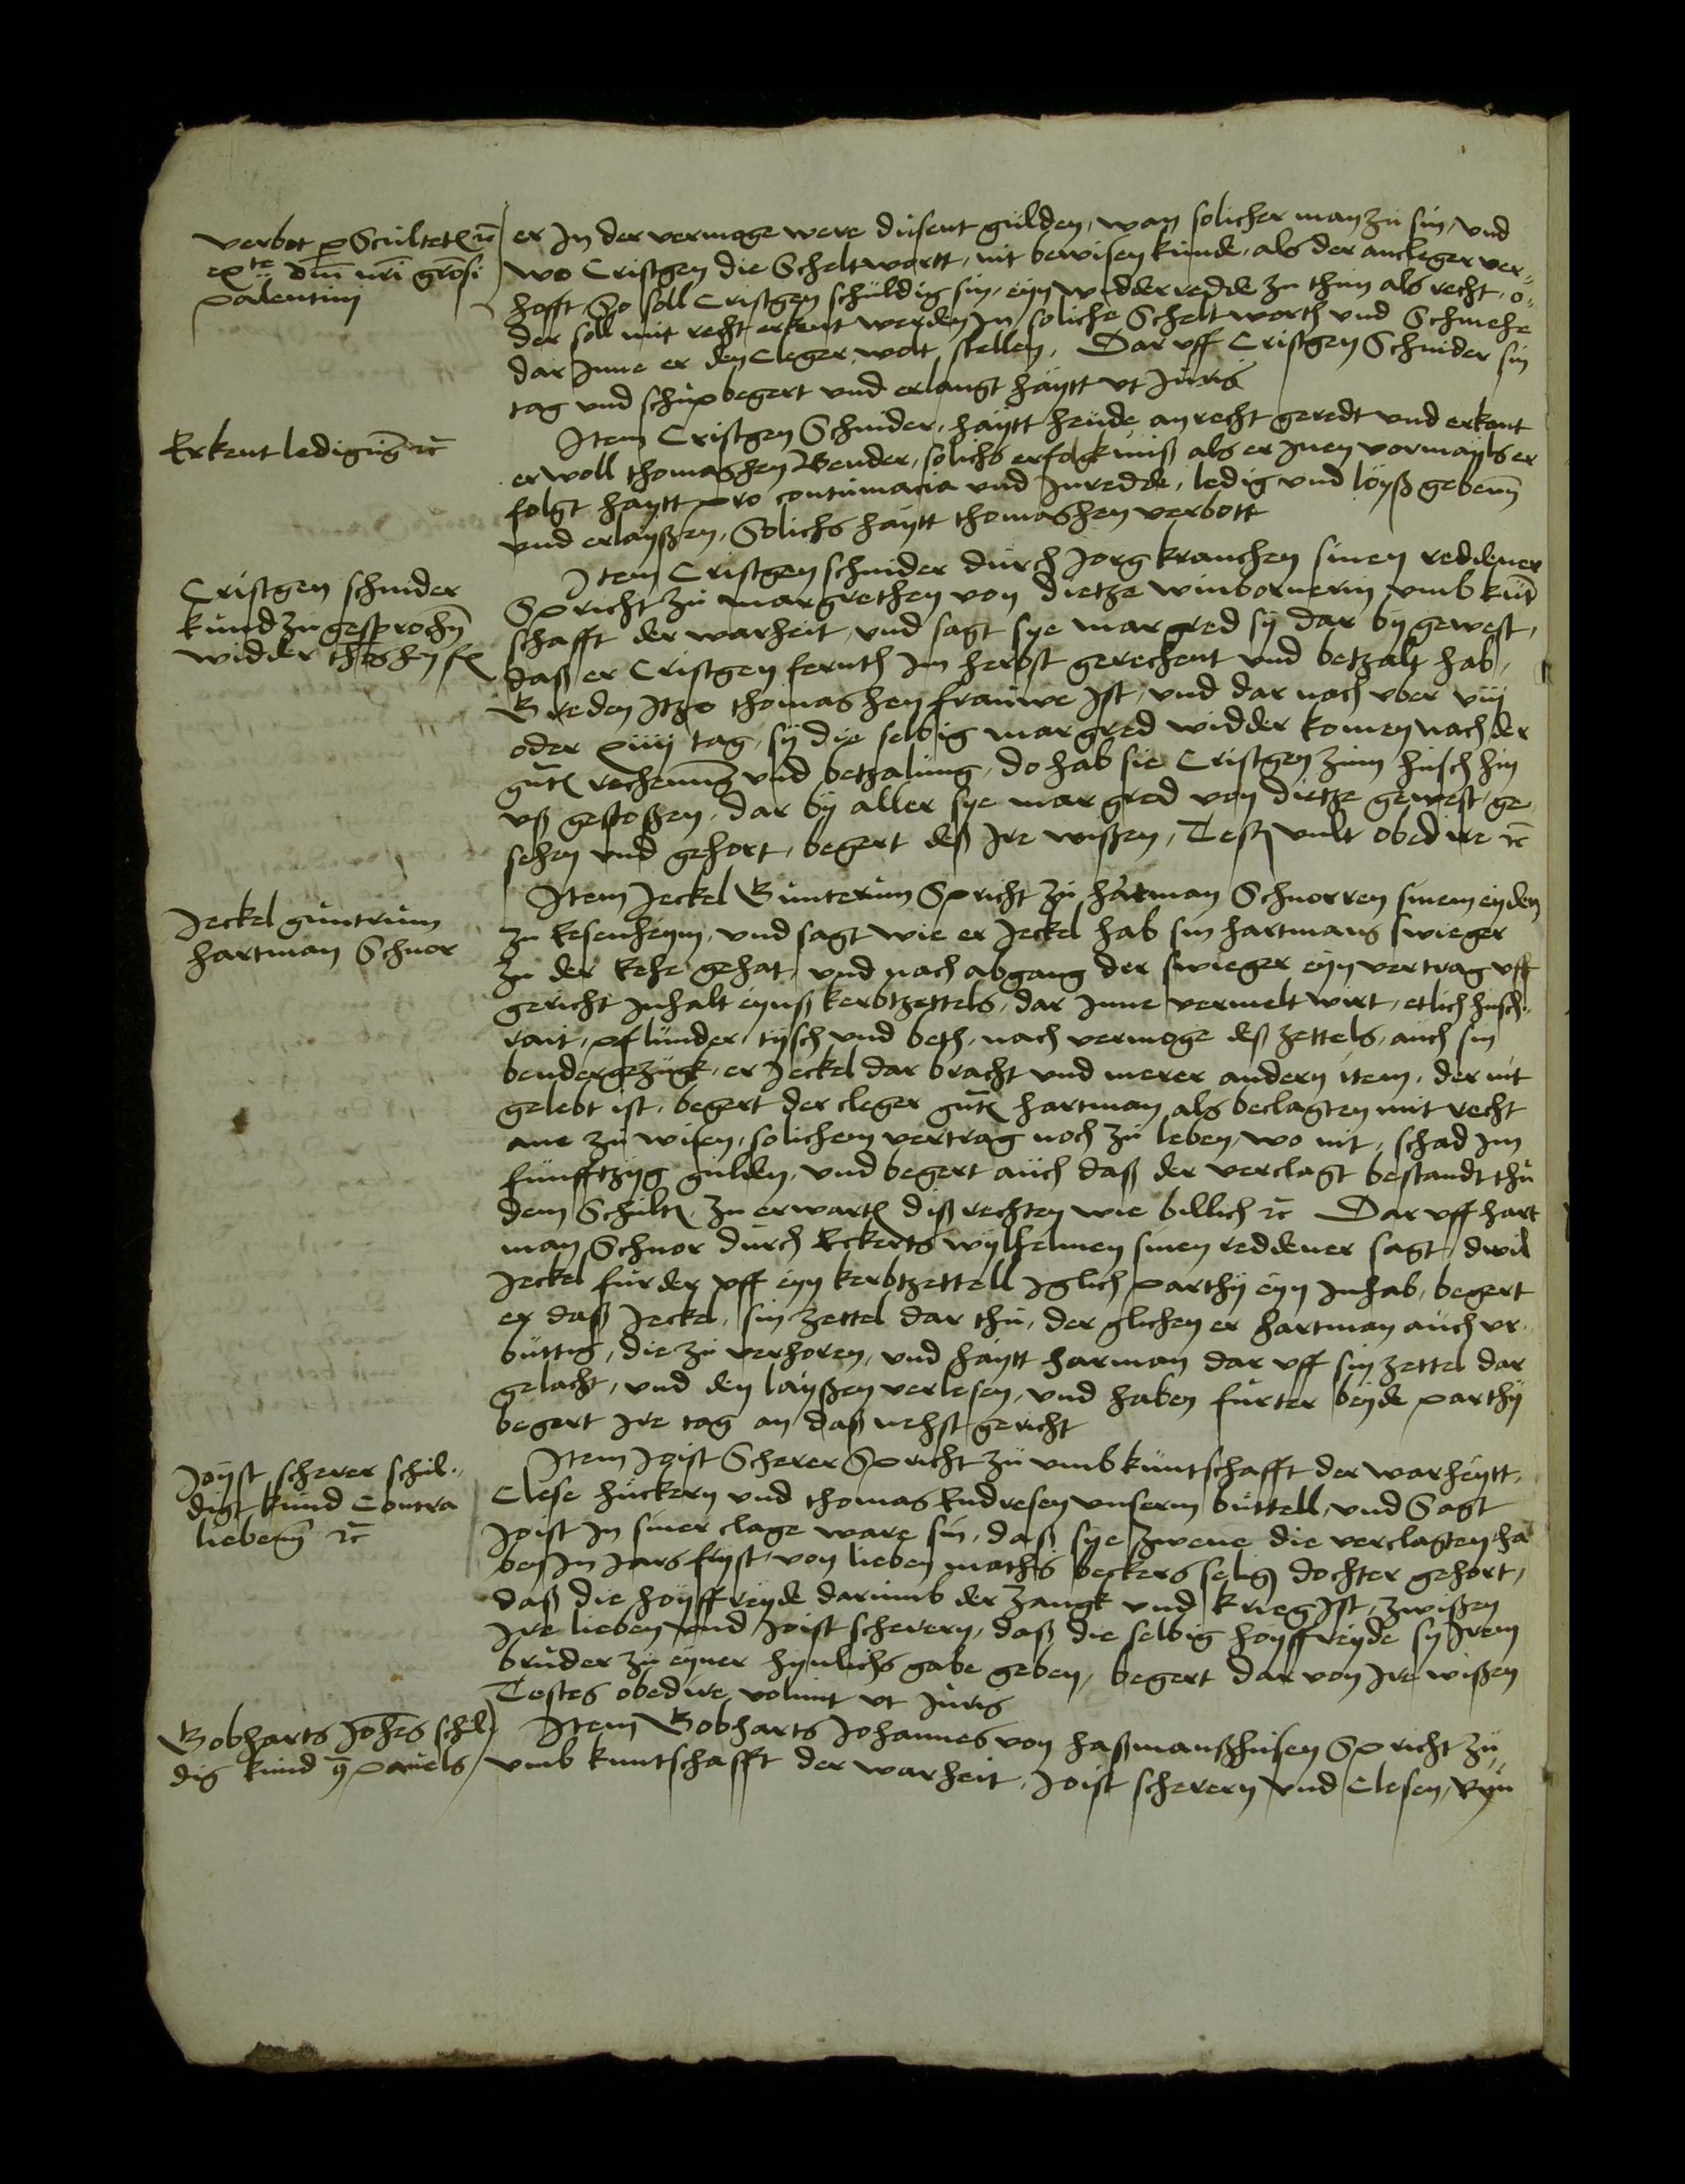 verbot p Scultet rc
ex te dm nri grosi
palentini
er In der vermoge were dusent gulden, wan solicher man zu sin, und
wo Cristgen die Scheltwortt, nit bewisen kunde, als der ancleger ver-
hofft, So soll Cristgen schuldig sin, eyn widderredde zu thun als recht, o-
der soll mit recht erkent werden In soliche Schelt worth und Schmehe
dar Inne er den Cleger wolt stellen, Dar uff Cristgen Schnider sin
tag und schup begert und erlangt haytt ut Juris
Erkent ledigung rc
Item Cristgen Schnider, haytt heude an recht geredt und erkant
er woll thomashen Bender, solichs erfolgkniß als er Inen vormayls er
folgt haytt pro contumacia und Inredde, ledig und loyß geben
und erlayßen, Solichs haytt thomashen verbott
Cristgen schnider
kund zugesprochen
widder
Item Cristgen schnider durch Jorg kranchen sinen reddener
Spricht zu margrethen von dietze winbornerin umb kunt
schafft der warheit, und sagt sye margred sy dar by gewest,
daß er Cristgen fernth im herbst gerechent und betzalt hab,
Greden Itzo thomashen frauwe Ist, und dar nach uber viij
oder xiiij tag, sy die selbig margred widder komen nach der
gute rechenung und betzalung, do hab sie Cristgen zum husch hin
uß gestoßen, dar by aller sye margred von dietze gewest, ge
sehen und gehort, begert deß Ire wißen, Test vult obedire rc
Jeckel guntrum
hartman Schnor
Item Jeckel Gunterum Spricht zu hartman Schnorren sinem eyden
zu kesenheym, und sagt wie er Jeckel hab sin hartmans swieger
zu der kehe gehat, und nach abgang der swieger eyn vertrag uff
gericht Inhalt eynß kerbtzettels, dar Inne vermelt wirt, etlich husch
rait, pflunder, tysch und beth, nach vermoge deß zettels, auch sin
bendergezugk, er Jeckel dar bracht und merer andern item, der nit
gelebt ist, begert der cleger gute hartman als beclagten mit recht
ane zu wisen, solichem vertrag noch zu leben, wo nit, schad Im
funfftzyg gulden, und begert auch daß der verclagt bestandt thu
dem Schult zu erwart diß rechten wie billich rc Dar uff hart
man Schnor durch Eckerts wylhelmen sinen reddener sagt, dwil
Jeckel furder uff eyn kerbtzettell Iglich parthy eyn Inhab, begert
er daß Jeckel, sin zettel dar thu, der glichen er hartman auch ur
buttig, die zu verhoren, und haytt harman dar uff sin zettel dar
gelacht, und den layßen verlesen, und haben furter beyde parthy
begert Ire tag an daß nehst gericht
Joyst scherer schul-
digt kund Contra
lieben rc
Item Joist Scherer Spricht zu umb kuntschafft der warheytt,
Clese huckern und thomas Endresen unserm buttell, und Sagt
Joist In siner clage ware sin, daß sye zwene die verclagten ha
ben In Jars fryst, von lieben mathis beckers selig dochter gehort,
daß die hoyffreyde darumb der zangk und krieg Ist, zwißen
Ire lieben und Joist scherern, daß die selbig hoyffreyde sy Irem
bruder zu eyner hynlichs gabe geben, begert dar von Ire wißen
Testes obedire volunt ut Juris
Bobharts Johes schul
dig kund pauels
Item Bobharts Johannes von haßmanßhusen Spricht zu
umb kuntschafft der warheit, Joist scherern und Clesen,